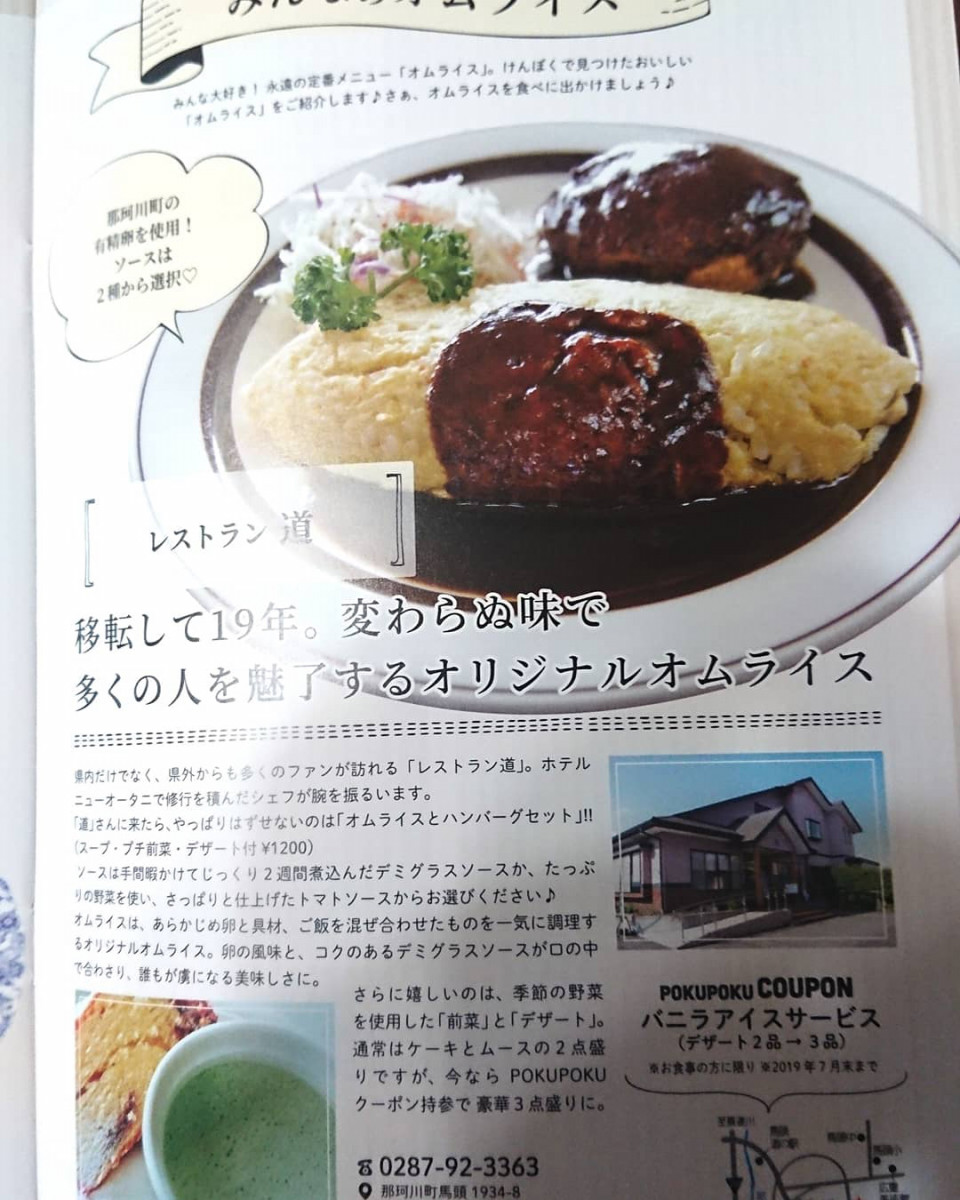 みんなのオムライス
みんな大好き！永遠の定番メニュー「オムライス」。けんぽくで見つけたおいしい
「オムライス」をご紹介します♪さぁ、オムライスを食べに出かけましょう♪
那珂川町の
有精卵を使用！
ソースは
2種から選択♡
レストラン 道
移転して19年。変わらぬ味で
多くの人を魅了するオリジナルオムライス
県内だけでなく、県外からも多くのファンが訪れる「レストラン道」。ホテル
ニューオータニで修行を積んだシェフが腕を振るいます。
「道」さんに来たら、やっぱりはずせないのは「オムライスとハンバーグセット」!!
(スープ・プチ前菜・デザート付 ¥1200)
ソースは手間暇かけてじっくり2週間煮込んだデミグラスソースか、たっぷ
りの野菜を使い、さっぱりと仕上げたトマトソースからお選びください♪
オムライスは、あらかじめ卵と具材、ご飯を混ぜ合わせたものを一気に調理す
るオリジナルオムライス。卵の風味と、コクのあるデミグラスソースが口の中
で合わさり、誰もが虜になる美味しさに。
さらに嬉しいのは、季節の野菜
を使用した「前菜」と「デザート」。
通常はケーキとムースの2点盛
りですが、今なら POKUPOKU
クーポン持参で 豪華3点盛りに。
POKUPOKU COUPON
バニラアイスサービス
(デザート2品→ 3品)
※お食事の方に限り ※2019年7月末まで
0287-92-3363
那珂川町馬頭 1934-8